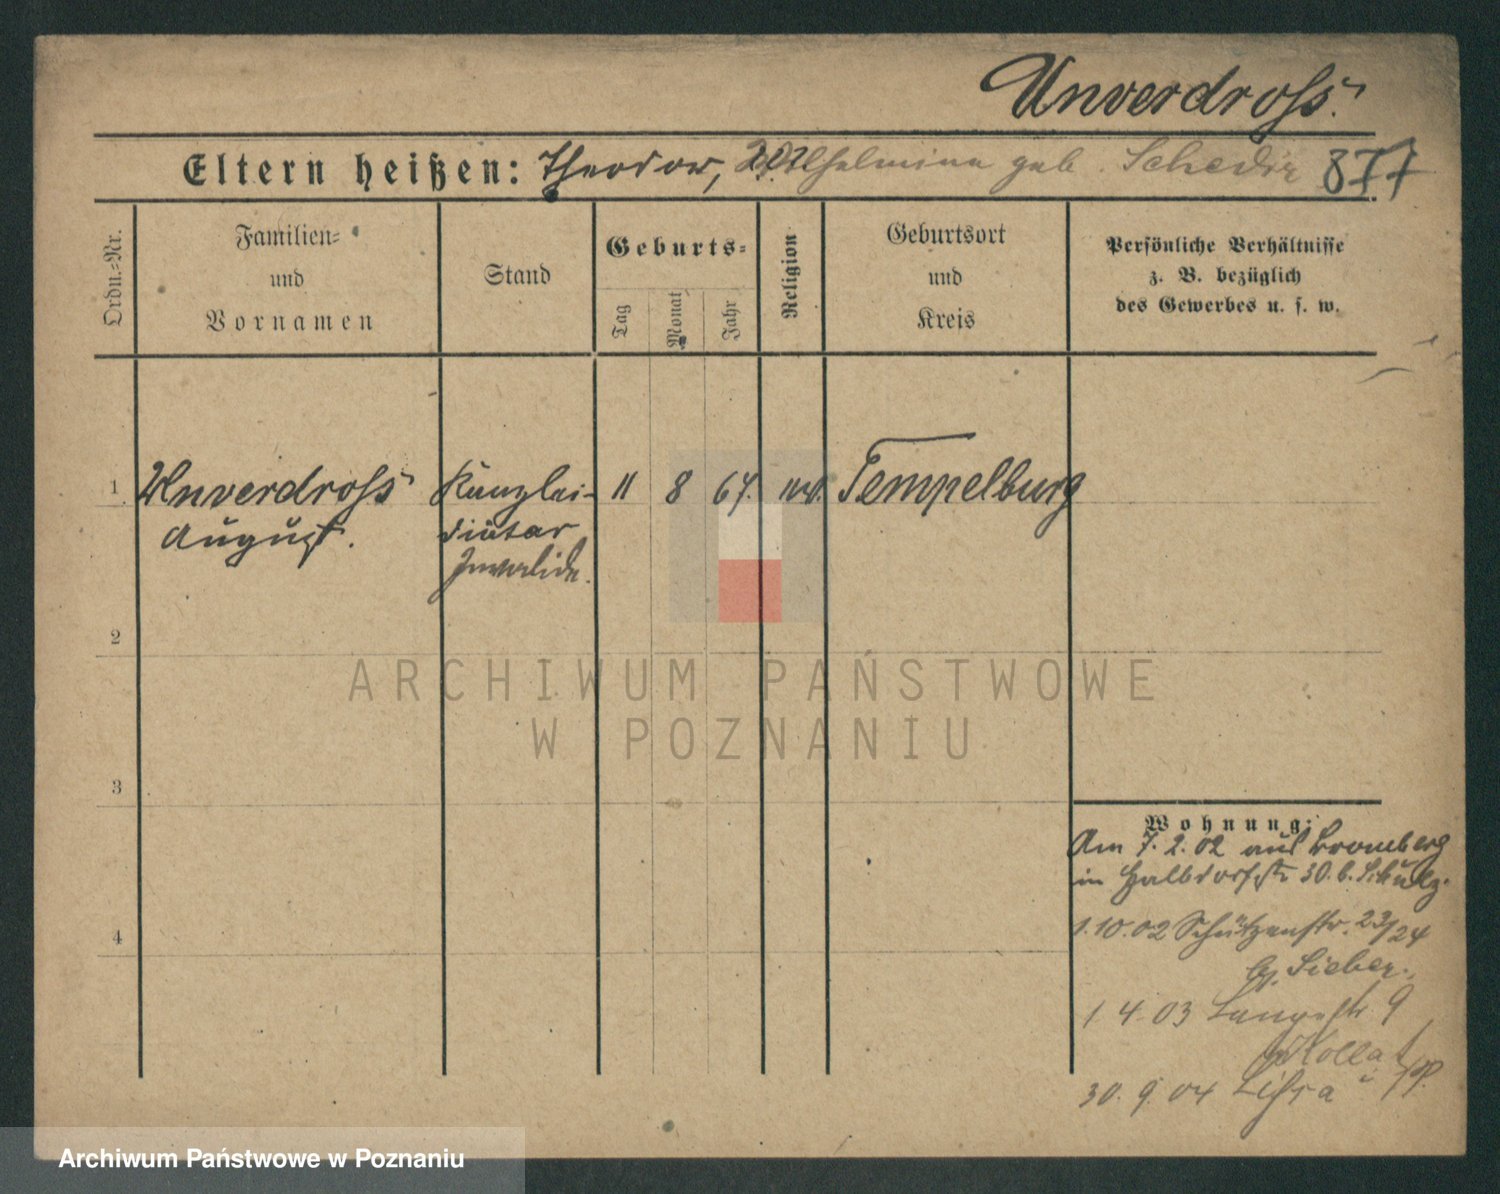 Unverdross.
Eltern heißen: Theodor, Wilhelmine geb. Schedir 877
Ordn.=Nr.
Familien=
und
Vornamen
Stand
Geburts=
Tag
Monat
Jahr
Religion
Geburtsort
und
Kreis
Persönliche Verhältnisse
z. B. bezüglich
des Gewerbes u. s. w.
1 Unverdross Kanzlei- 11 8 67. Tempelburg
August. diätar
Invalide.
2
3
4
Wohnung:
Am 7. 2. 02 aus Bromberg
in Halbdorfstr 30. b. Schulz.
1. 10. 02 Schützenstr. 23/24
b. Sieber.
1 4. 03 Langestr 9
Kollat
30. 9. 04 Lissa i
ARCHIWUM PAŃSTWOWE
W POZNANIU
Archiwum Państwowe w Poznaniu